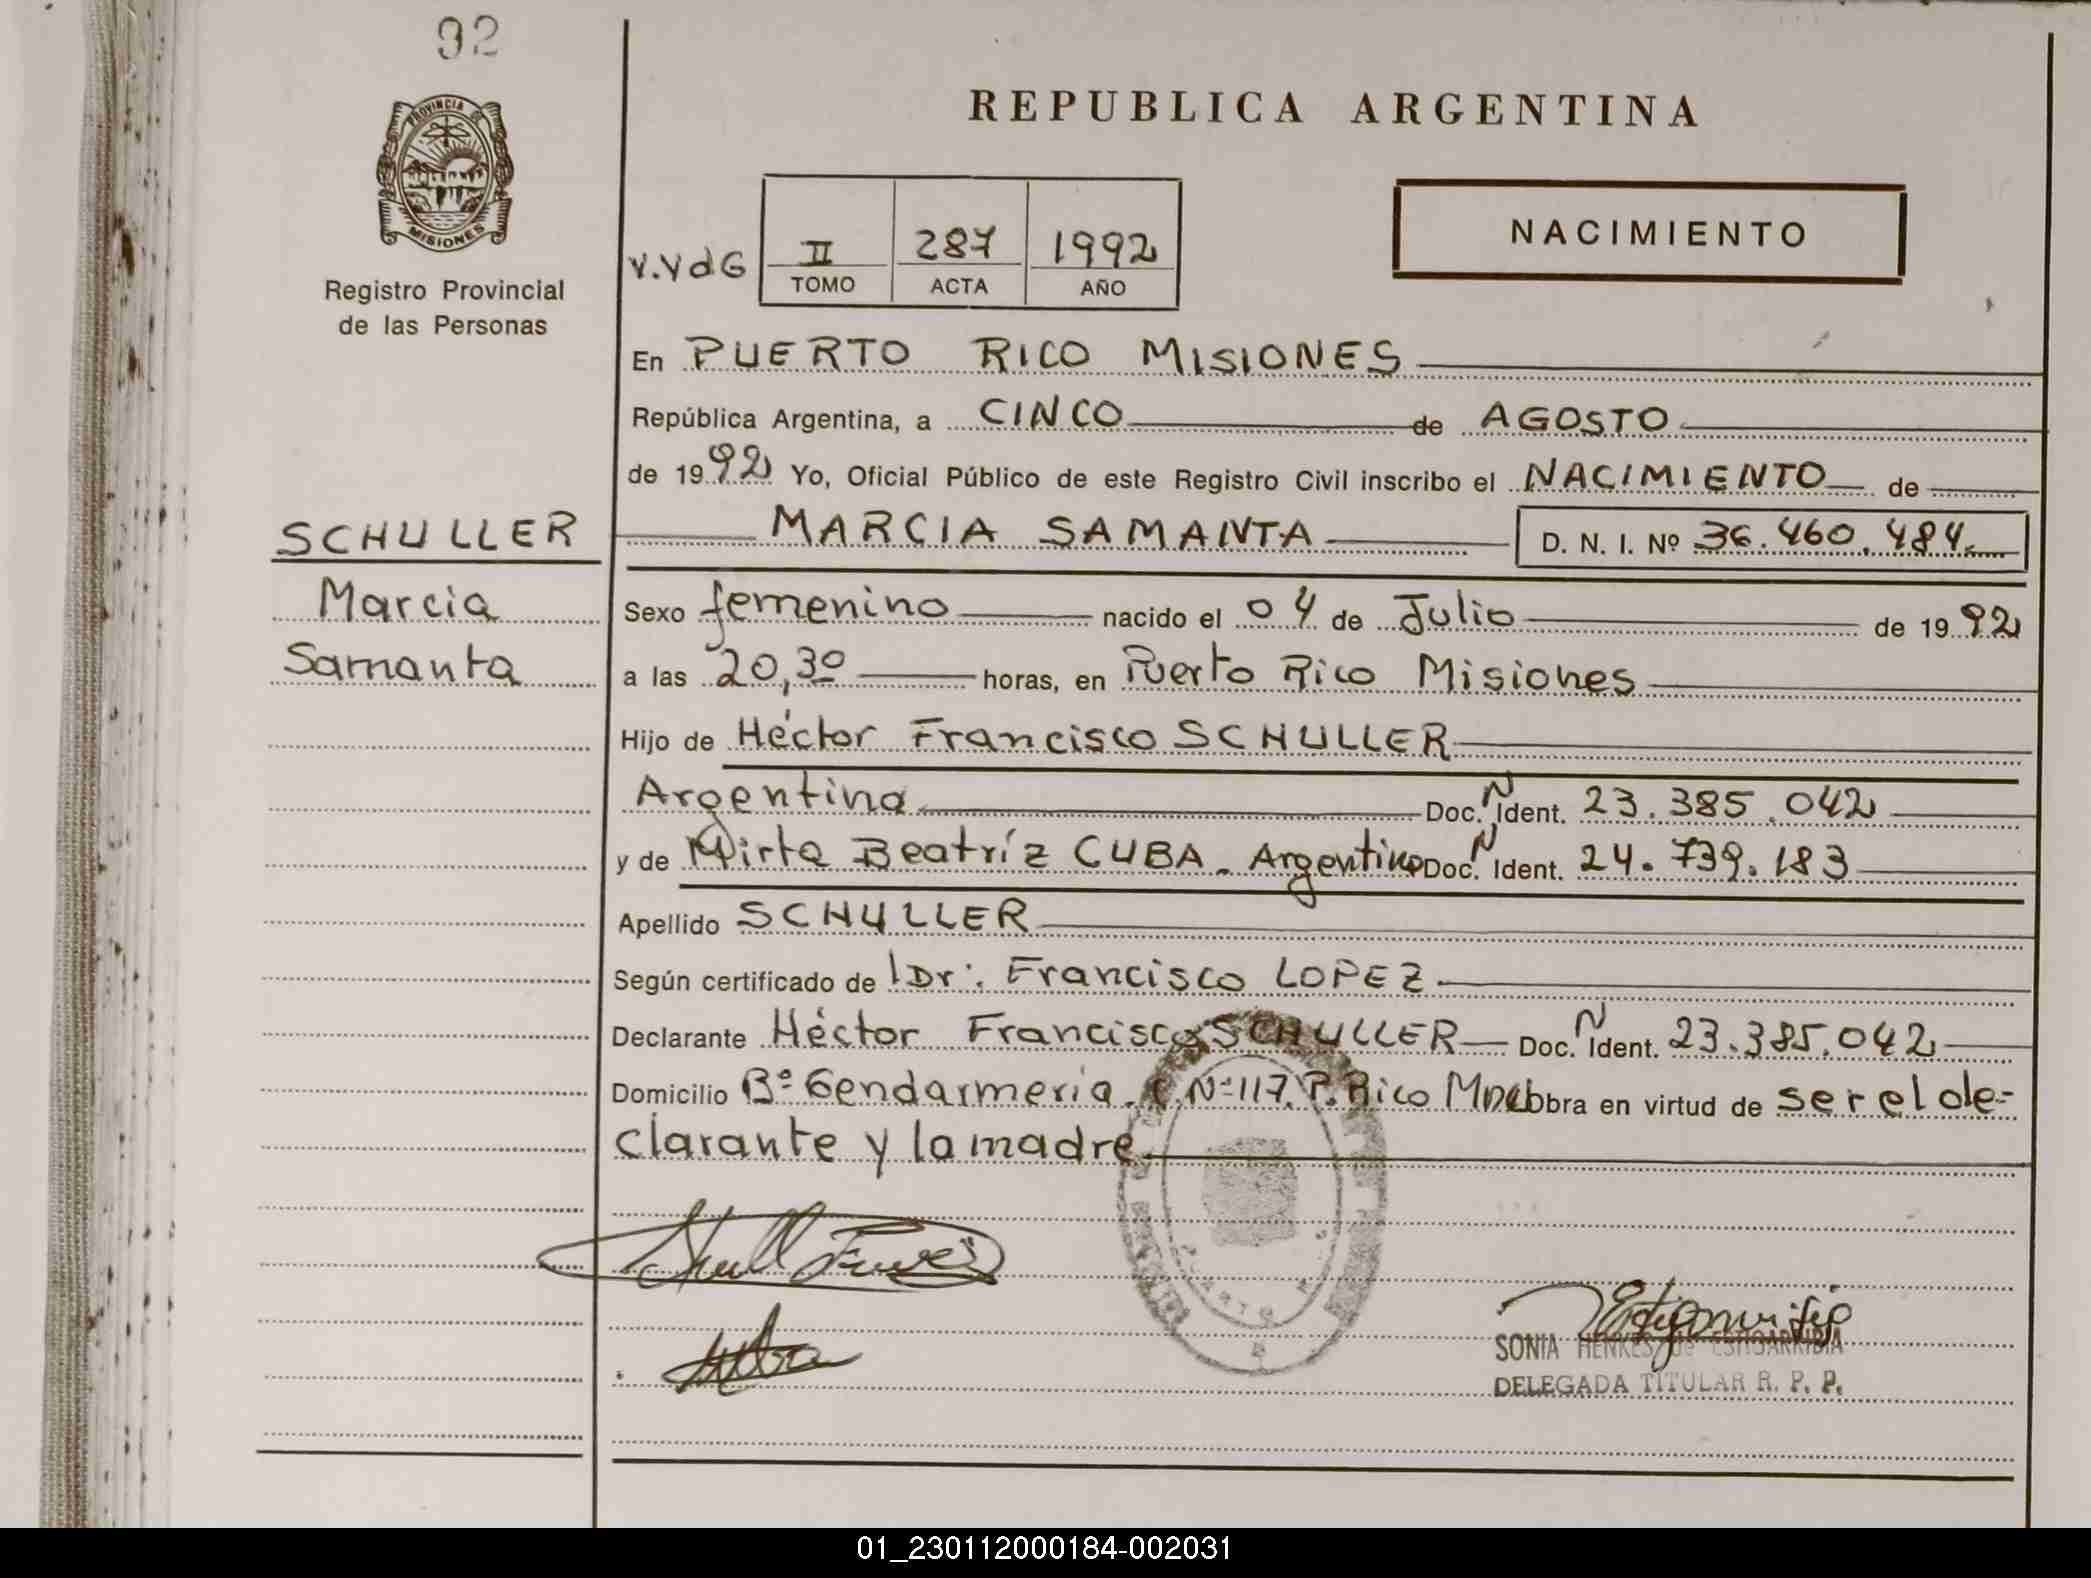 92
REPUBLICA ARGENTINA
PROVINCIA DE
MISIONES
Registro Provincial
de las Personas
V.VdG
II 287 1992
TOMO ACTA AÑO
NACIMIENTO
En PUERTO RICO MISIONES
República Argentina, a CINCO de AGOSTO
de 1992 Yo, Oficial Público de este Registro Civil inscribo el NACIMIENTO de
SCHULLER
MARCIA SAMANTA D. N. I. Nº 36.460.484.
Marcia
Sexo femenino nacido el 04 de Julio de 1992
Samanta
a las 20,30 horas, en Puerto Rico Misiones
Hijo de Héctor Francisco SCHULLER
Argentina Doc. N Ident. 23.385.042
y de Mirta Beatríz CUBA. Argentina Doc. N Ident. 24.739.183
Apellido SCHULLER
Según certificado de Dr: Francisco LOPEZ
Declarante Héctor Francisco SCHULLER Doc. N Ident. 23.385.042
Domicilio Bº Gendarmería. C.Nº117. P.Rico Mnes Obra en virtud de ser el de-
clarante y la madre
SONIA HENKES de
DELEGADA TITULAR R. P. P.
01_230112000184-002031